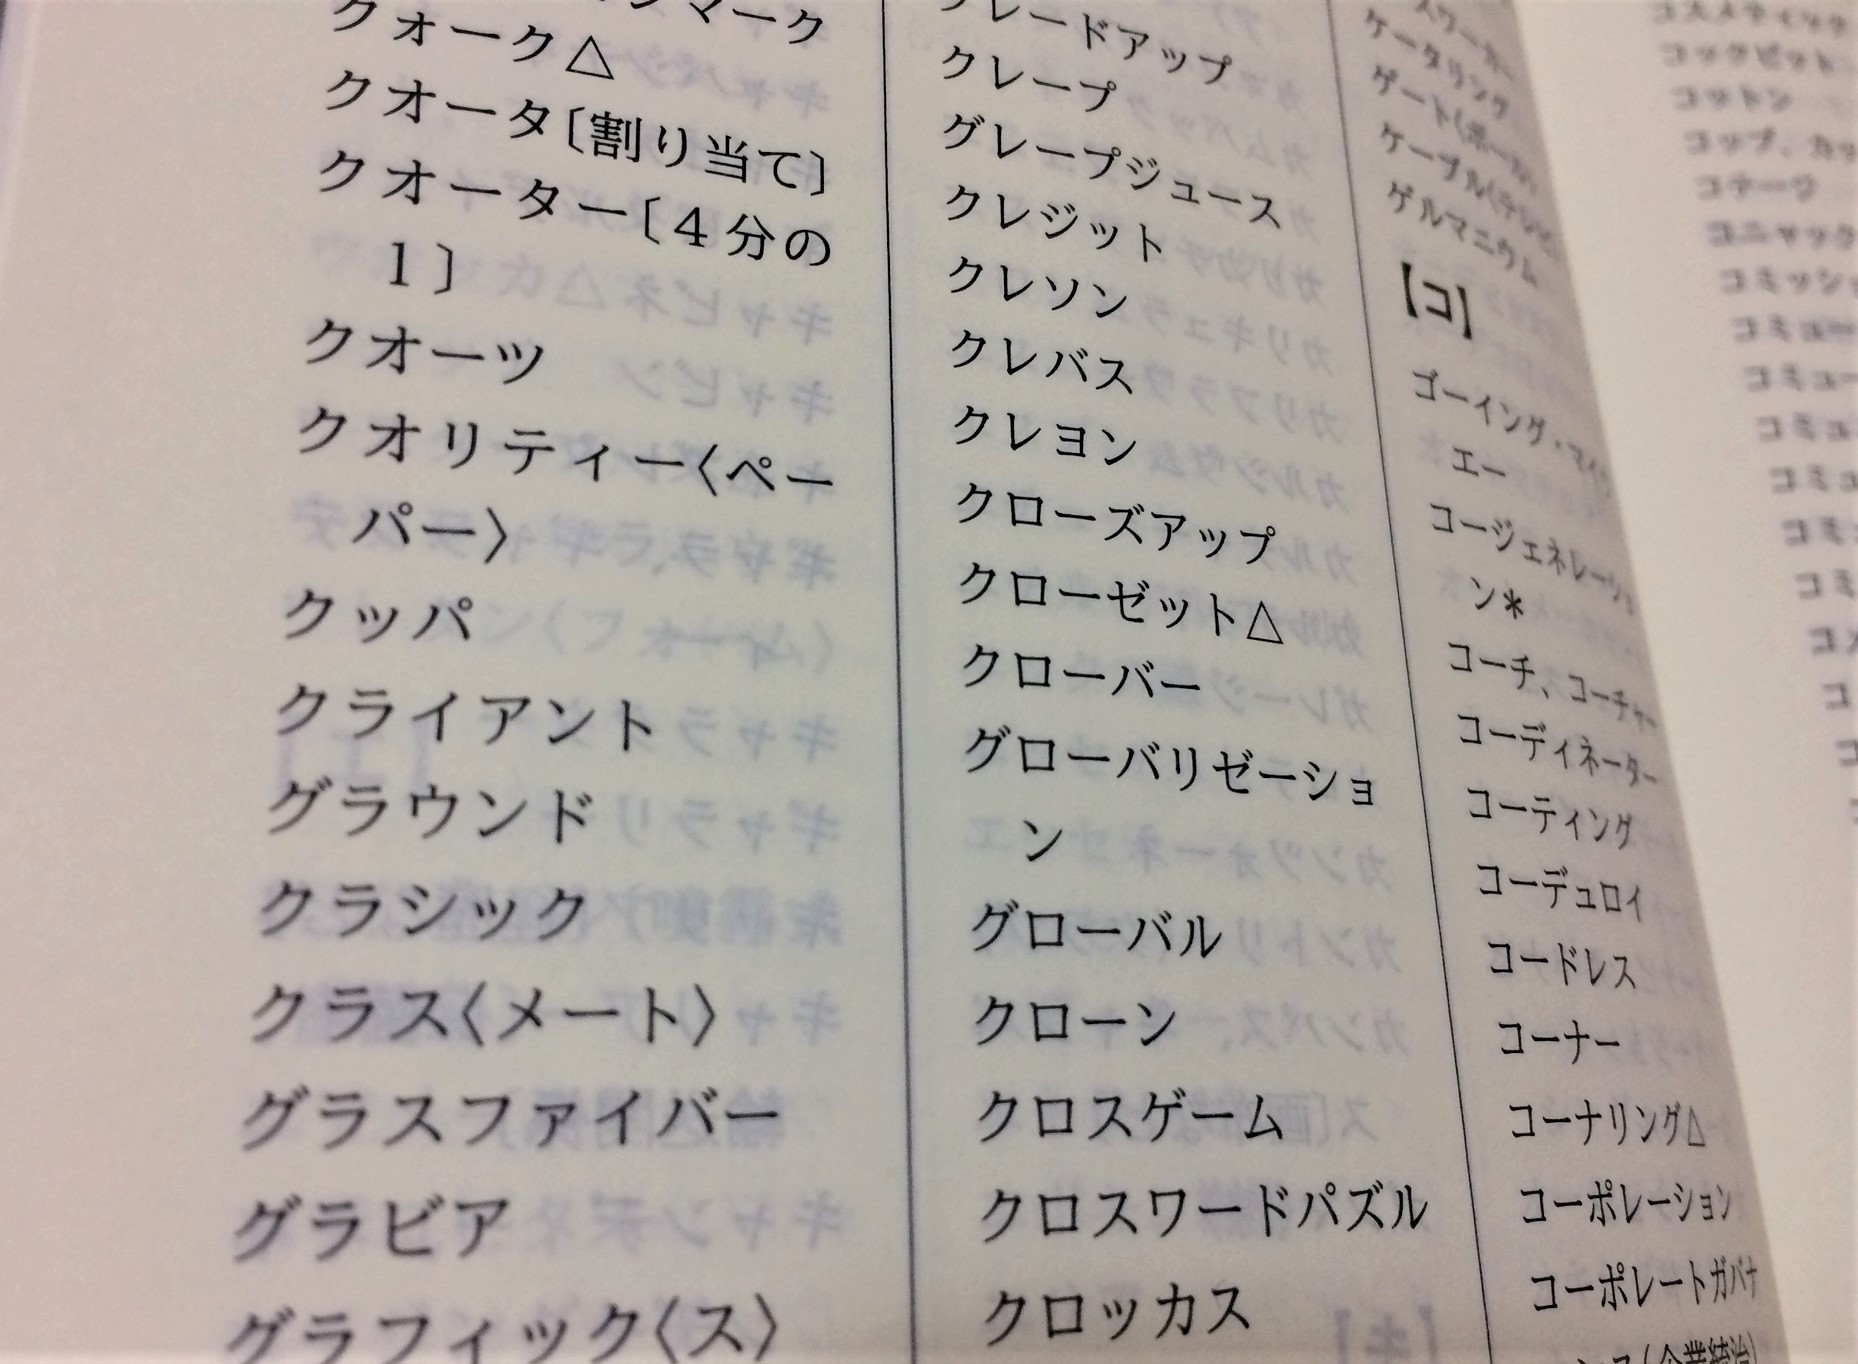 マーク
クォーク△
クオータ〔割り当て〕
クオーター〔４分の
１〕
クオーツ
クオリティー〈ペー
パー〉
クッパ
クライアント
グラウンド
クラシック
クラス〈メート〉
グラスファイバー
グラビア
グラフィック〈ス〉
グレードアップ
クレープ
グレープジュース
クレジット
クレソン
クレバス
クレヨン
クローズアップ
クローゼット△
クローバー
グローバリゼーショ
ン
グローバル
クローン
クロスゲーム
クロスワードパズル
クロッカス
ケータリング
ゲート(ボール)
ケーブル(テレビ)
ゲルマニウム
【コ】
ゴーイング・マイウ
エー
コージェネレーショ
ン＊
コーチ、コーチャー
コーディネーター
コーティング
コーデュロイ
コードレス
コーナー
コーナリング△
コーポレーション
コーポレートガバナ
ンス(企業統治)
コスメティック
コックピット
コットン
コップ、カッ
コテージ
コニャック
コミッショ
コミュー
コミュー